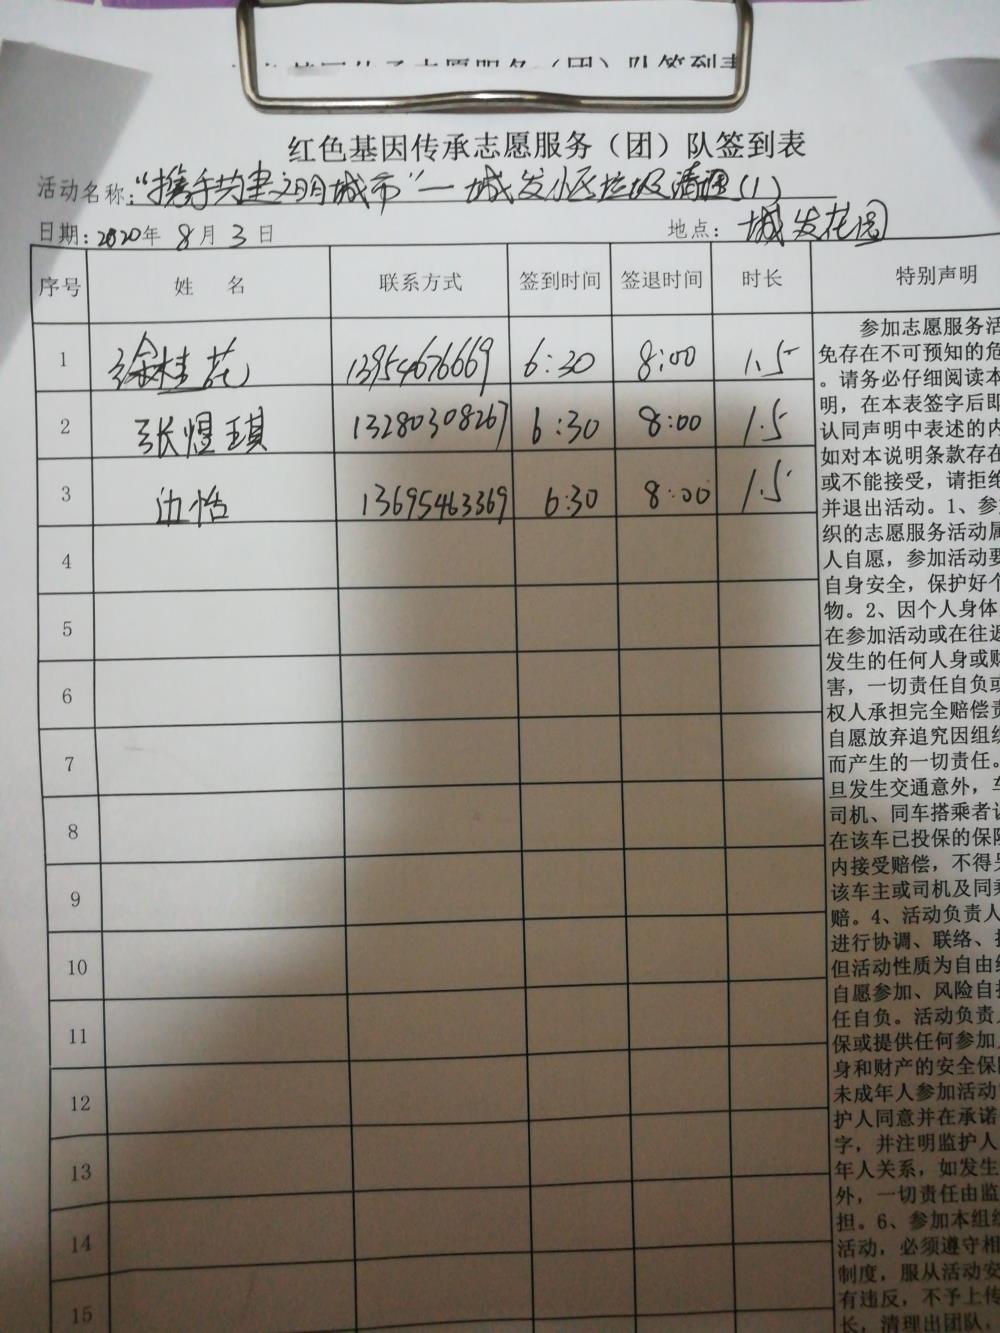 红色基因传承志愿服务（团）队签到表
活动名称："携手共建文明城市"一城发小区垃圾清理(1)
日期：2020年 8月 3日 地点：城发花园
序号 姓 名 联系方式 签到时间 签退时间 时长 特别声明
1 徐桂花 13954676669 6:30 8:00 1.5
2 张煜琪 13280308267 6:30 8:00 1.5
3 边恬 13695463369 6:30 8:00 1.5
4
5
6
7
8
9
10
11
12
13
14
15
参加志愿服务活
免存在不可预知的危
。请务必仔细阅读本
明，在本表签字后即
认同声明中表述的内
如对本说明条款存在
或不能接受，请拒绝
并退出活动。1、参
织的志愿服务活动属
人自愿，参加活动要
自身安全，保护好个
物。2、因个人身体
在参加活动或在往返
发生的任何人身或财
害，一切责任自负或
权人承担完全赔偿责
自愿放弃追究因组织
而产生的一切责任。
旦发生交通意外，车
司机、同车搭乘者认
在该车已投保的保险
内接受赔偿，不得另
该车主或司机及同乘
赔。4、活动负责人
进行协调、联络、
但活动性质为自由组
自愿参加、风险自担
任自负。活动负责人
保或提供任何参加人
身和财产的安全保障
未成年人参加活动
护人同意并在承诺
字，并注明监护人
年人关系，如发生
外，一切责任由监
担。6、参加本组织
活动，必须遵守相
制度，服从活动安
有违反，不予上传
长，清理出团队。